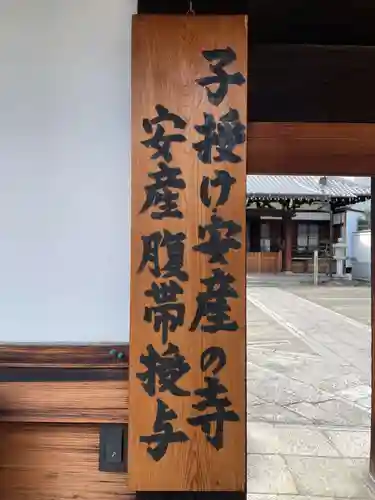 子授け安産の寺
安産腹帯授与